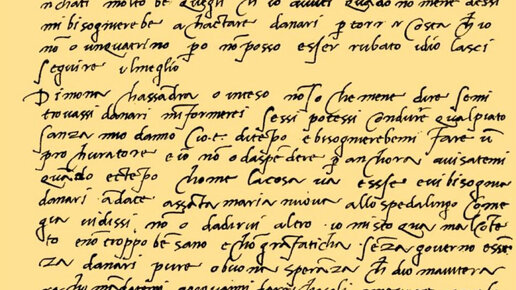 nchati molto be quegli ch io avuti quado no mene dessi
mi bisognierebe achactare danari p torr n costa ch io
no o unquatrino po no posso esser rubato idio lasci
seguire ulmeglio
Di mona chassandra o inteso no so che mene dire se mi
trovassi danari m informerei sessi potessi condure qua piato
sanza mio danno cioe di tepo e bisognierebemi fare u
prochuratore e io no o daspendere p anchora avisatemi
quado e ctepo chome la cosa va essse e vi bisognia
danari adate assata maria nuova allo spedalingo come
gia vi dissi no o dadirvi altro io mi sto qua malcote
to e no troppo be sano e cho gra faticha seza governo e sse
za danari pure o buona speranza ch dio m aiutera